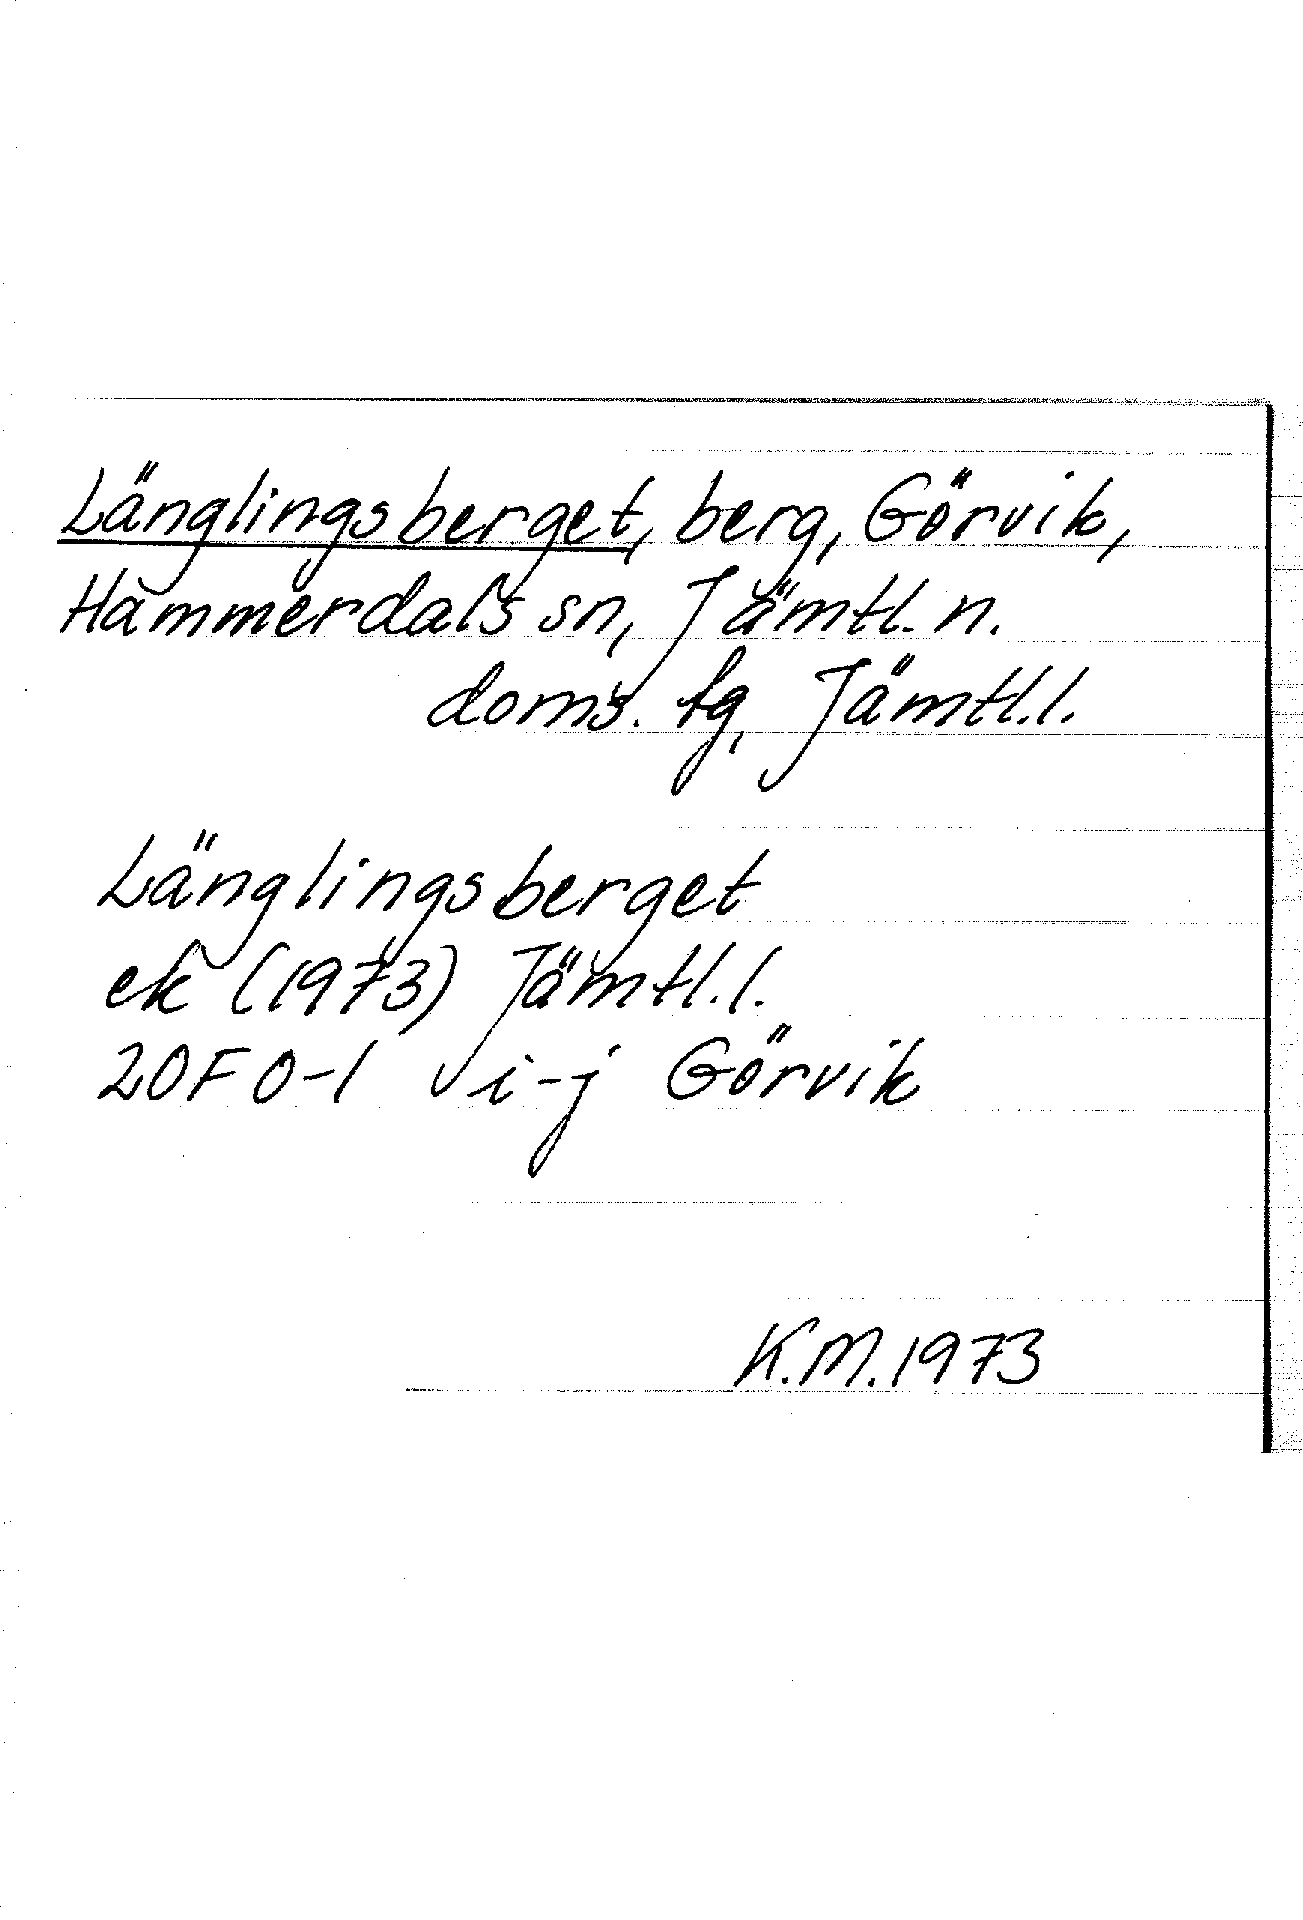 Länglingsberget, berg, Görvik,
Hammerdals sn, Jämtl. n.
doms. fg, Jämtl. l.
Länglingsberget
ek (1973) Jämtl. l.
20F 0-1 i-j Görvik
K.M. 1973